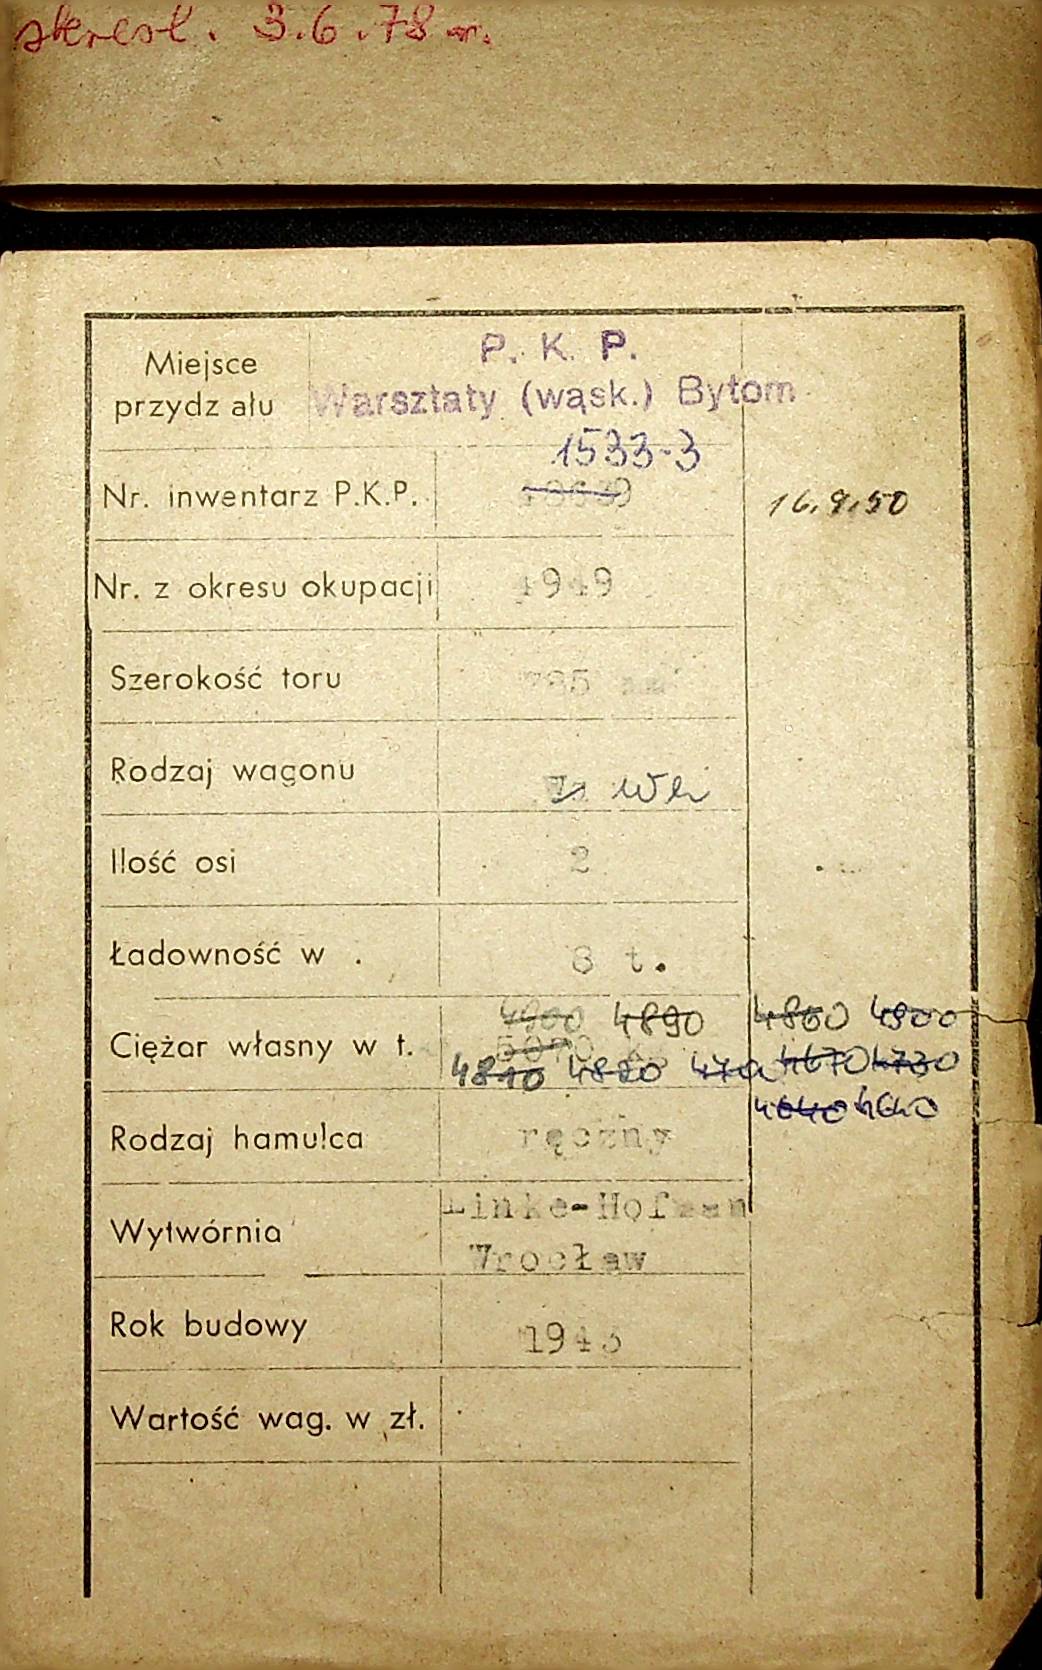 skreśl. 3.6.78 r.
Miejsce
przydz ału
P. K. P.
Warsztaty (wąsk.) Bytom
1533-3
Nr. inwentarz P.K.P.
16.9.50
Nr. z okresu okupacji 4949
Szerokość toru 785 mm
Rodzaj wagonu
Ilość osi 2
Ładowność w . 8 t.
4900 4890 4860 4800
Ciężar własny w t.
4810 4820 4670 4730
4640 4640
Rodzaj hamulca ręczny
Linke-Hofman
Wytwórnia
Wrocław
Rok budowy 1943
Wartość wag. w zł.